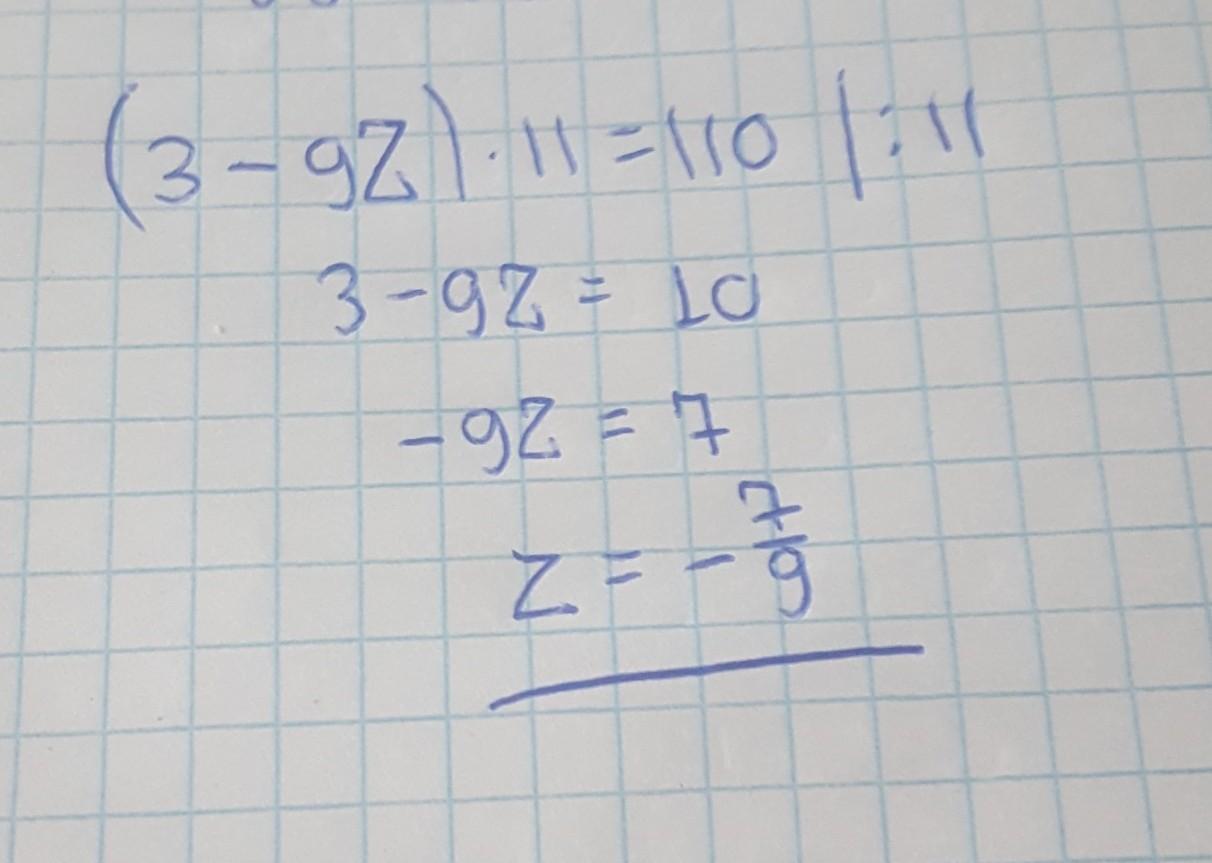 (3-9z)·11=110 |:11
3-9z = 10
-9z = 7
z = -7/9